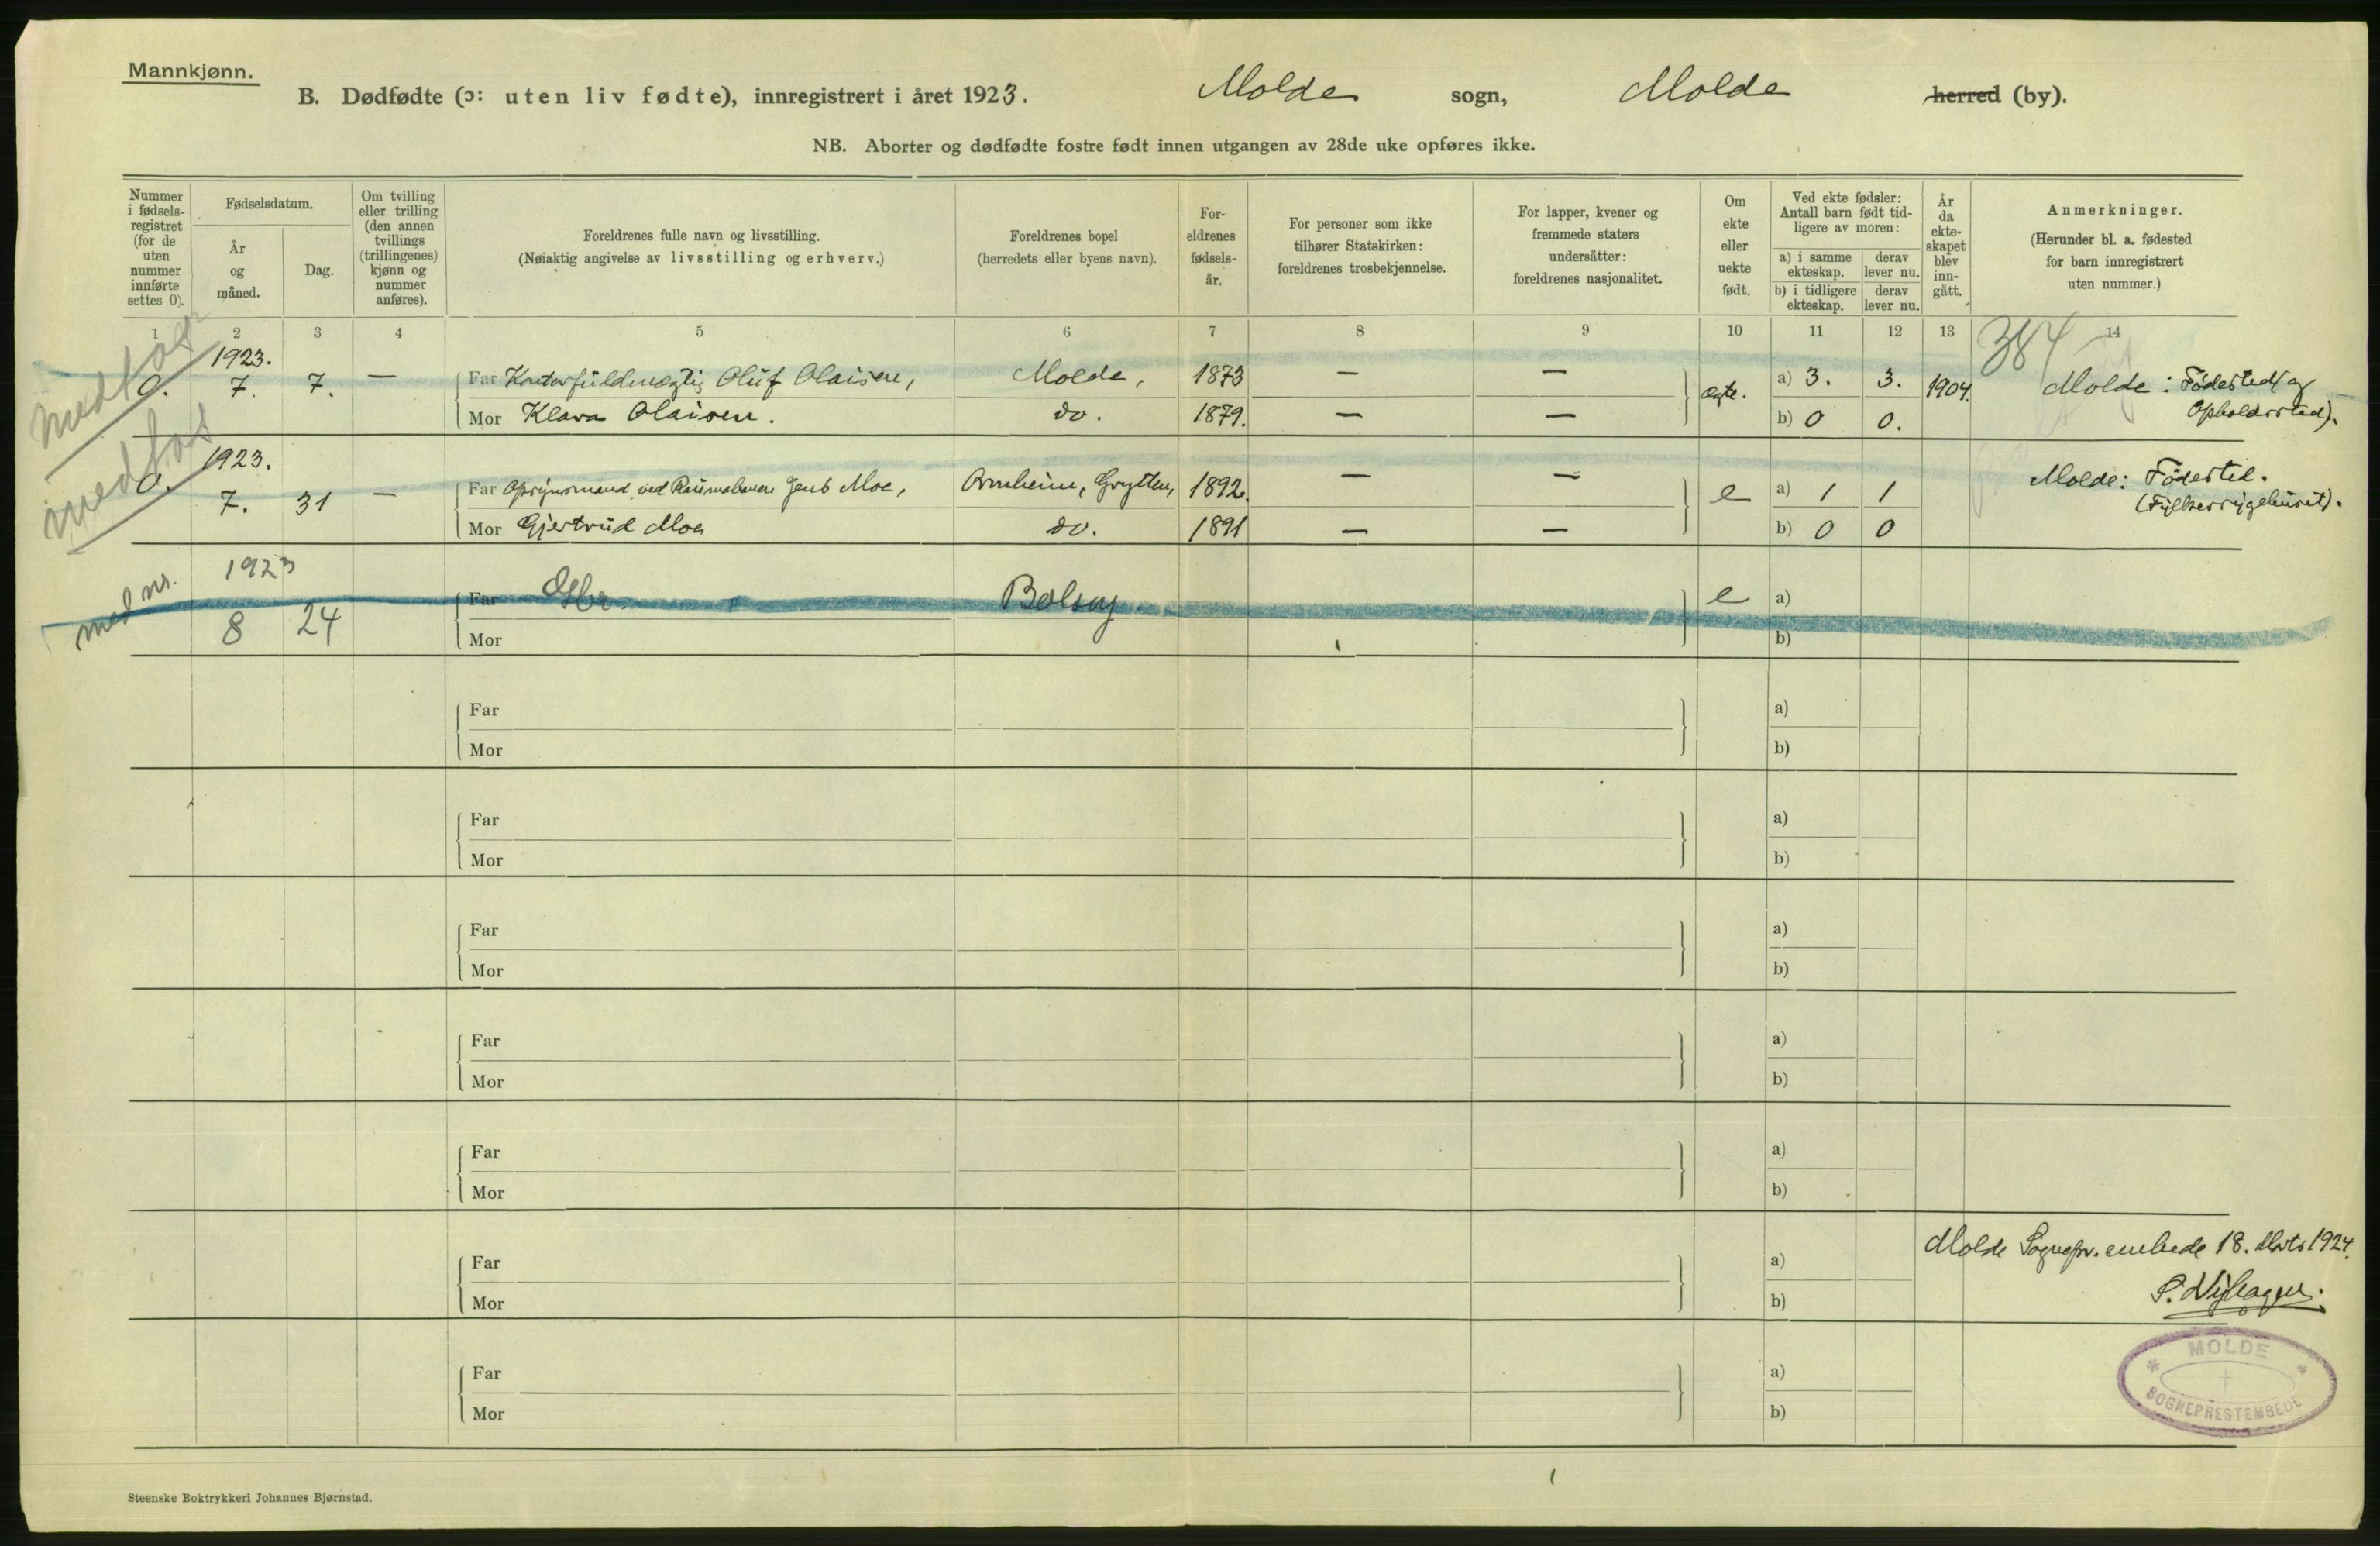 Mannkjønn.
B. Dødfødte (ɔ: uten liv fødte), innregistrert i året 1923. Molde sogn, Molde herred (by).
NB. Aborter og dødfødte fostre født innen utgangen av 28de uke opføres ikke.
Nummer i fødsels-registret (for de uten nummer innførte settes 0).
Fødselsdatum.
År og måned.
Dag.
Om tvilling eller trilling (den annen tvillings (trillingenes) kjønn og nummer anføres).
Foreldrenes fulle navn og livsstilling.
(Nøiaktig angivelse av livsstilling og erhverv.)
Foreldrenes bopel
(herredets eller byens navn).
For-eldrenes fødsels-år.
For personer som ikke tilhører Statskirken: foreldrenes trosbekjennelse.
For lapper, kvener og fremmede staters undersåtter: foreldrenes nasjonalitet.
Om ekte eller uekte født.
Ved ekte fødsler: Antall barn født tid-ligere av moren:
a) i samme ekteskap. derav lever nu.
b) i tidligere ekteskap. derav lever nu.
År da ekte-skapet blev inn-gått.
Anmerkninger.
(Herunder bl. a. fødested for barn innregistrert uten nummer.)
1 2 3 4 5 6 7 8 9 10 11 12 13 14
384
medtost
1923.
0. 7. 7. — Far Kontorfuldmægtig Oluf Olaisen, Molde, 1873 — — ægte. a) 3. 3. 1904. Molde: Fødested (og
Mor Klara Olaisen. do. 1879. — — b) 0 0. Opholdssted).
medtost
1923.
0. 7. 31 — Far Opsynsmand ved Raumabanen Jens Moe, Armheim, Grytten, 1892. — — e a) 1 1 Molde: Fødested.
Mor Gjertrud Moe do. 1891 — — b) 0 0 (Fylkessygehuset).
med nr.
1923
8 24 Far Gbr. Bolsøy e a)
Mor b)
Far a)
Mor b)
Far a)
Mor b)
Far a)
Mor b)
Far a)
Mor b)
Far a)
Mor b)
Far a)
Mor b)
Far a)
Mor b)
Molde Sognepr. embede 18. Mars 1924.
MOLDE
SOGNEPRESTEMBEDE
Steenske Boktrykkeri Johannes Bjørnstad.